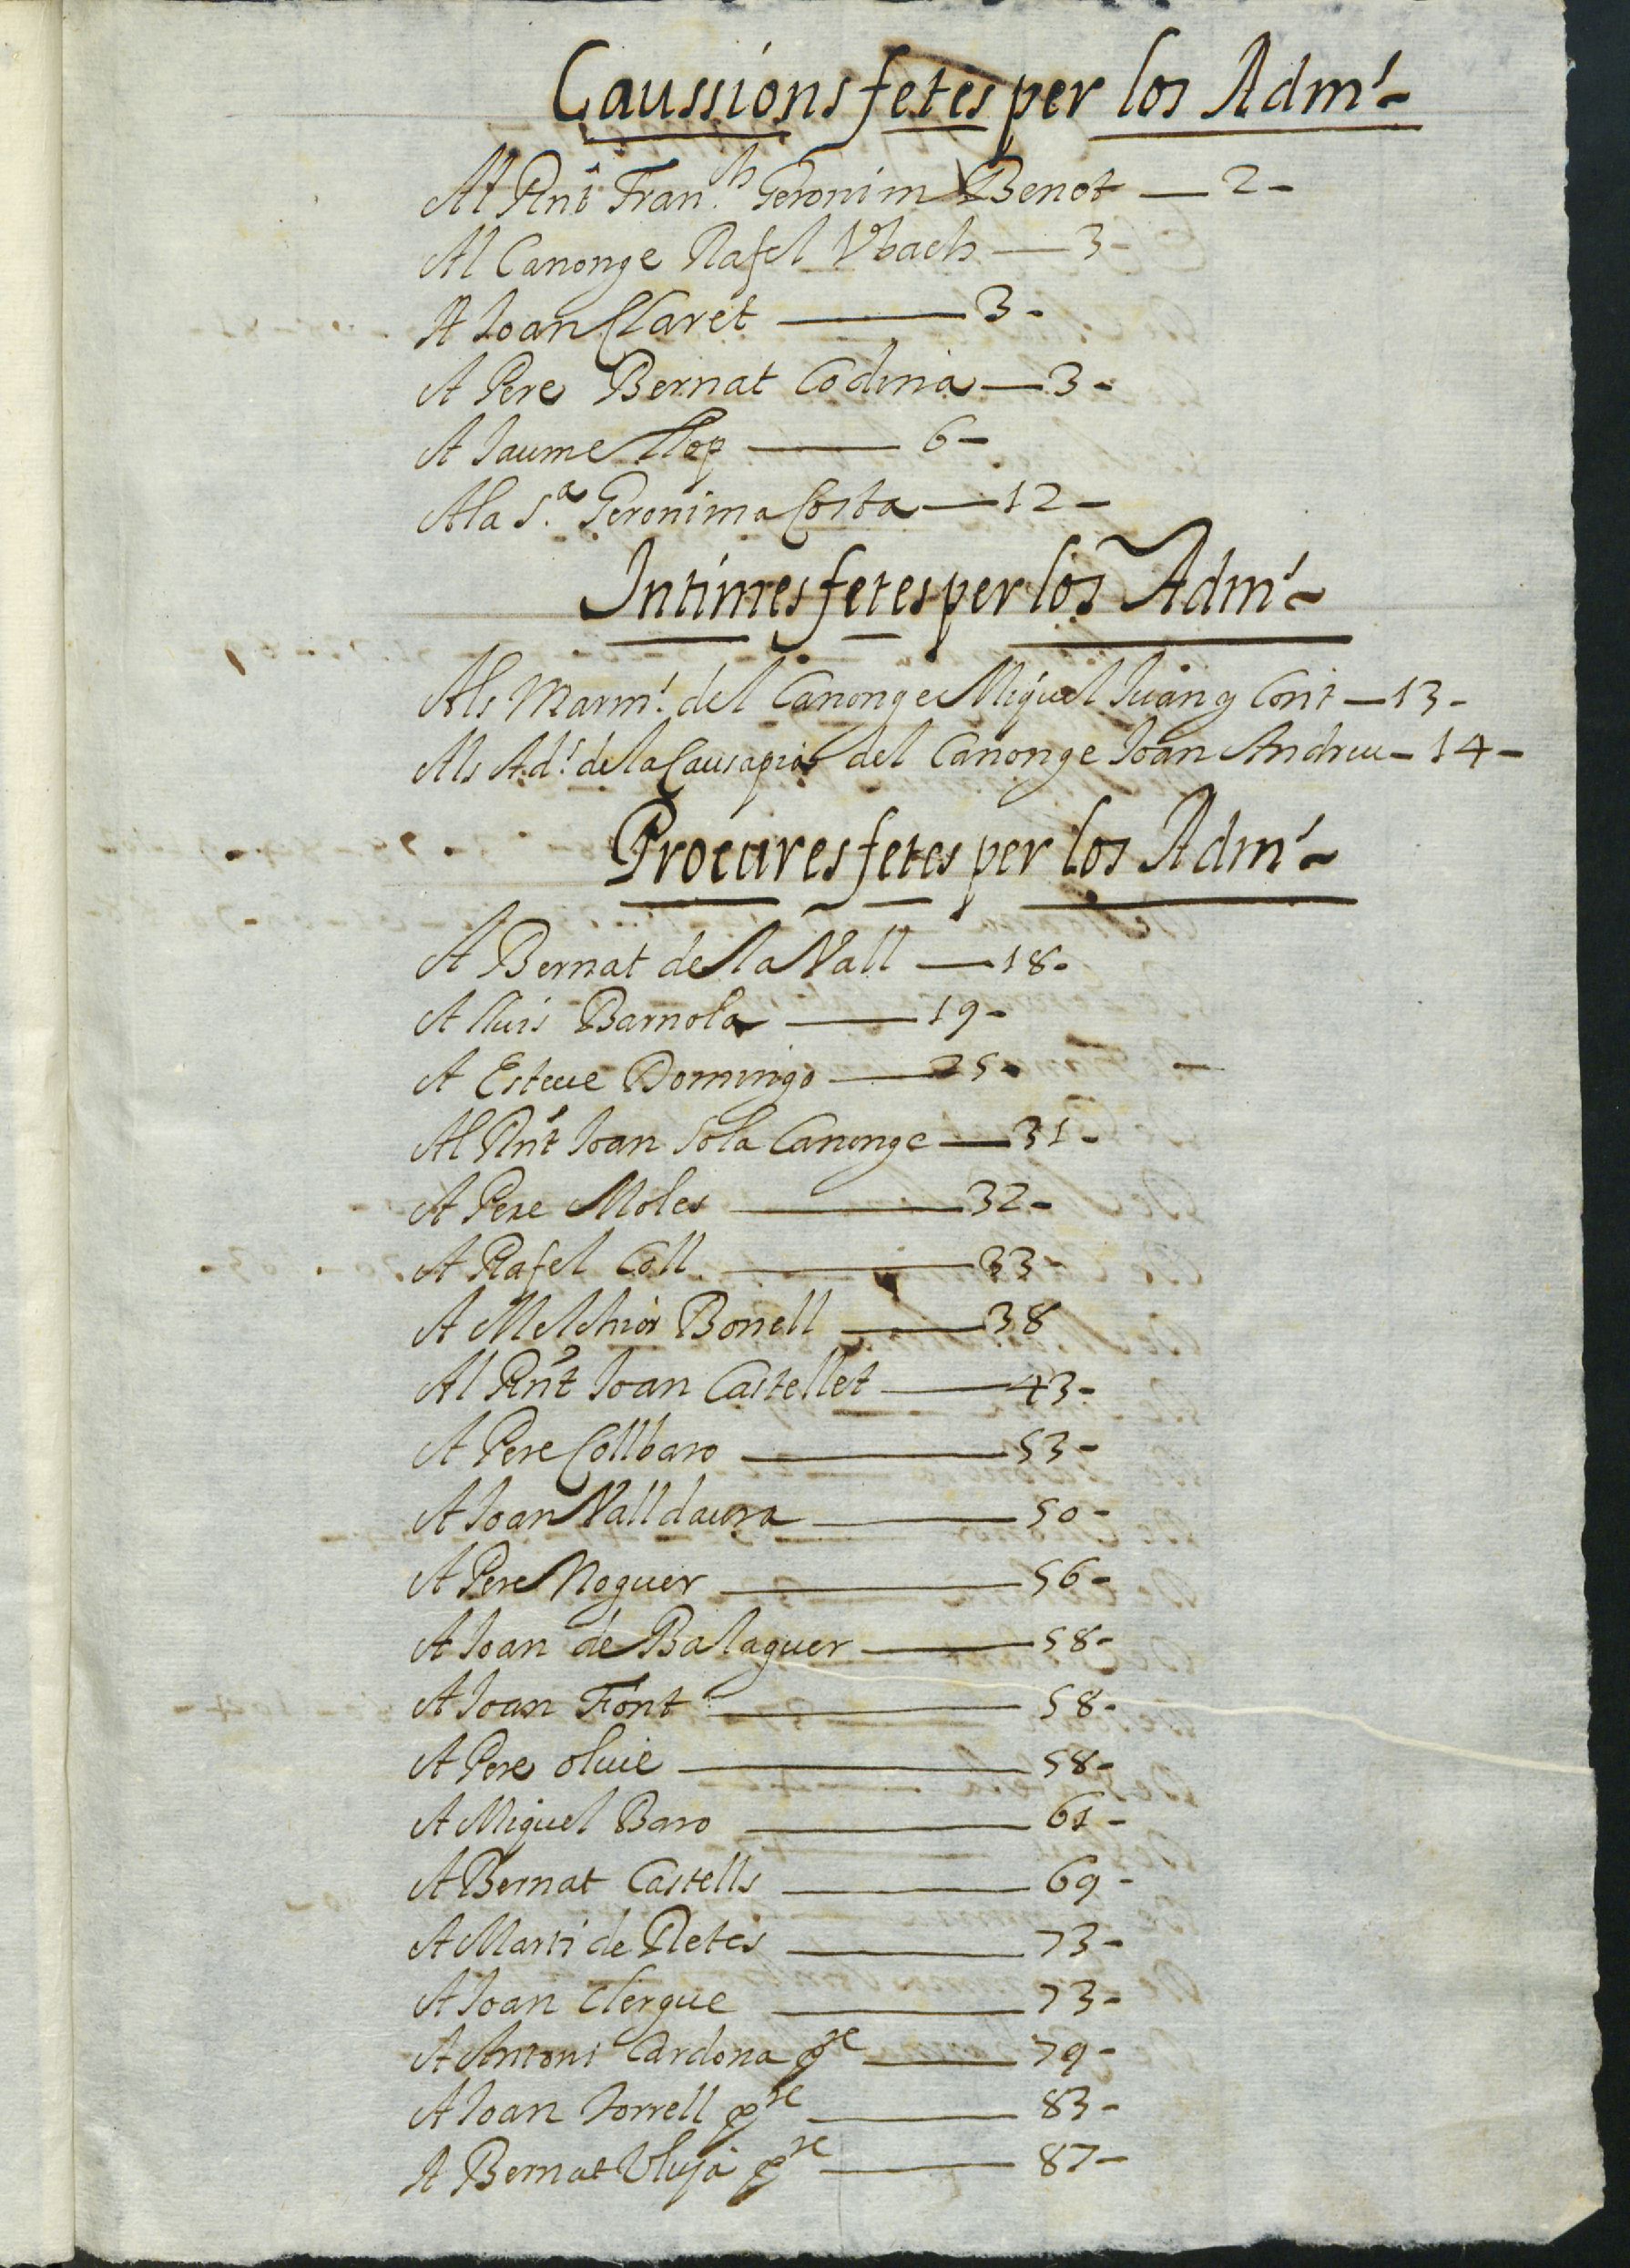 Caussions fetes per los Adm.rs
Al Rnt Fran.ch Geronim Benet — 2 -
Al Canonge Rafel Vbach — 3 -
A Ioan Claret — 3 -
A Pere Bernat Codina — 3 -
A Iaume Llop — 6 -
A la S.a Geronima Costa — 12 -
Intimes fetes per los Adm.rs
Als Marm.rs del Canonge Miquel Iuan y Cont — 13 -
Als Ad.rs de la Causa pia del Canonge Ioan Andreu - 14 -
Procures fetes per los Adm.rs
A Bernat de la Vall — 18 -
A Lluis Barnola — 19 -
A Esteue Domingo — 25 -
Al Rnt Ioan Sola Canonge — 31 -
A Pere Moles — 32 -
A Rafel Coll — 33 -
A Melchior Borrell — 38
Al Rnt Ioan Castellet — 43 -
A Pere Collbaro — 53 -
A Ioan Valldaura — 50 -
A Pere Noguer — 56 -
A Ioan de Balaguer — 58 -
A Ioan Font — 58 -
A Pere oluie — 58 -
A Miquel Baro — 61 -
A Bernat Castells — 69 -
A Marti de Retes — 73 -
A Ioan Clergue — 73 -
A Antoni Cardona pre — 79 -
A Ioan Torrell pre — 83 -
A Bernat Vluja pre — 87 -